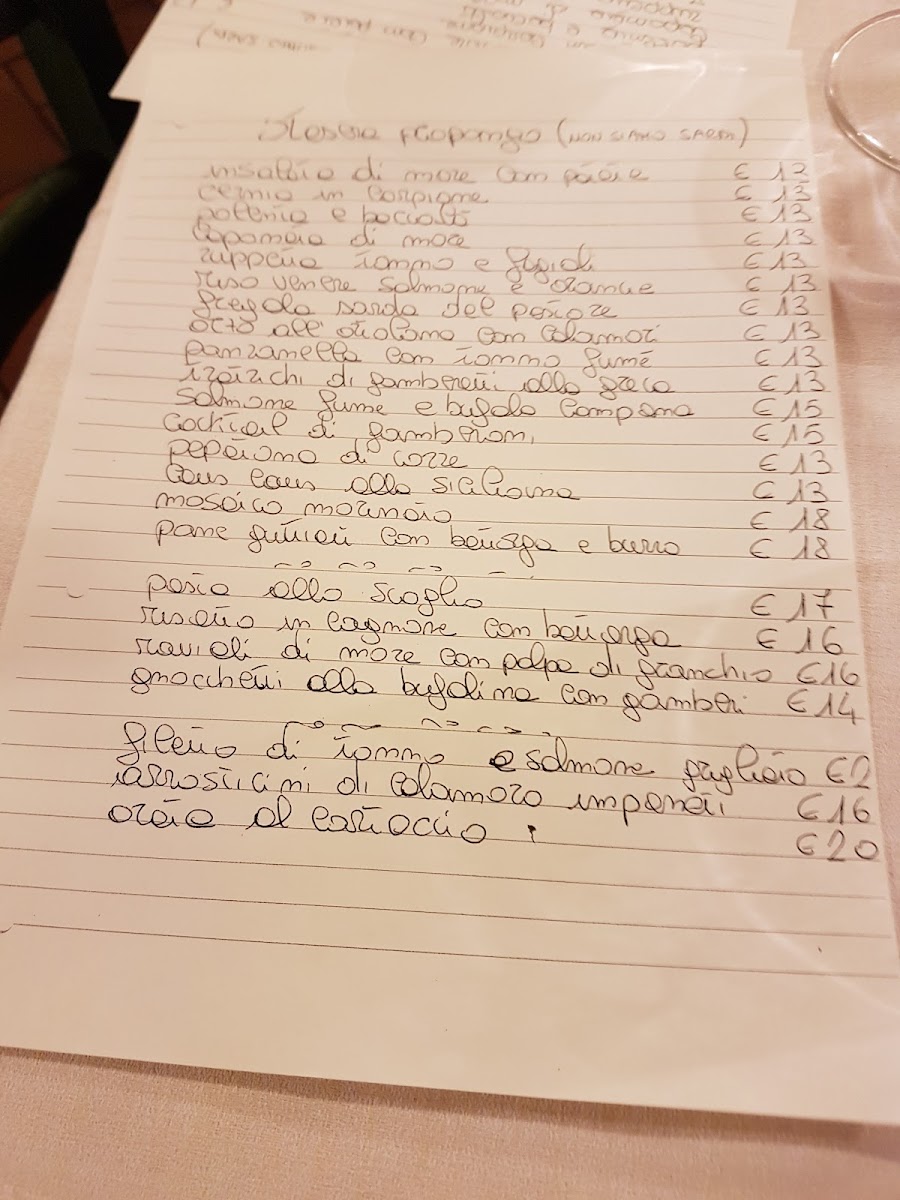 (NON SIAMO SARDI)
insalata di mare con patate € 13
cernia in carpione € 13
polenta e € 13
caponata di mare € 13
zuppetta tonno e fagioli € 13
riso venere salmone e € 13
fregola sarda del pescatore € 13
orzo all'ortolana con calamari € 13
panzanella con tonno fumé € 13
tzatziki di gamberetti alla greca € 13
salmone fume e bufala campana € 15
cocktail di gamberoni € 15
pepatona di cozze € 13
cous cous alla siciliana € 13
mosaico marinaro € 18
pane guttiau con bottarga e burro € 18
pasta allo scoglio € 17
risotto in cagnone con bottarga € 16
ravioli di mare con polpa di granchio € 16
gnocchetti alla bufalina con gamberi € 14
filetto di tonno e salmone grigliato € 2
arrosticini di calamaro impanati € 16
orata al cartoccio € 20